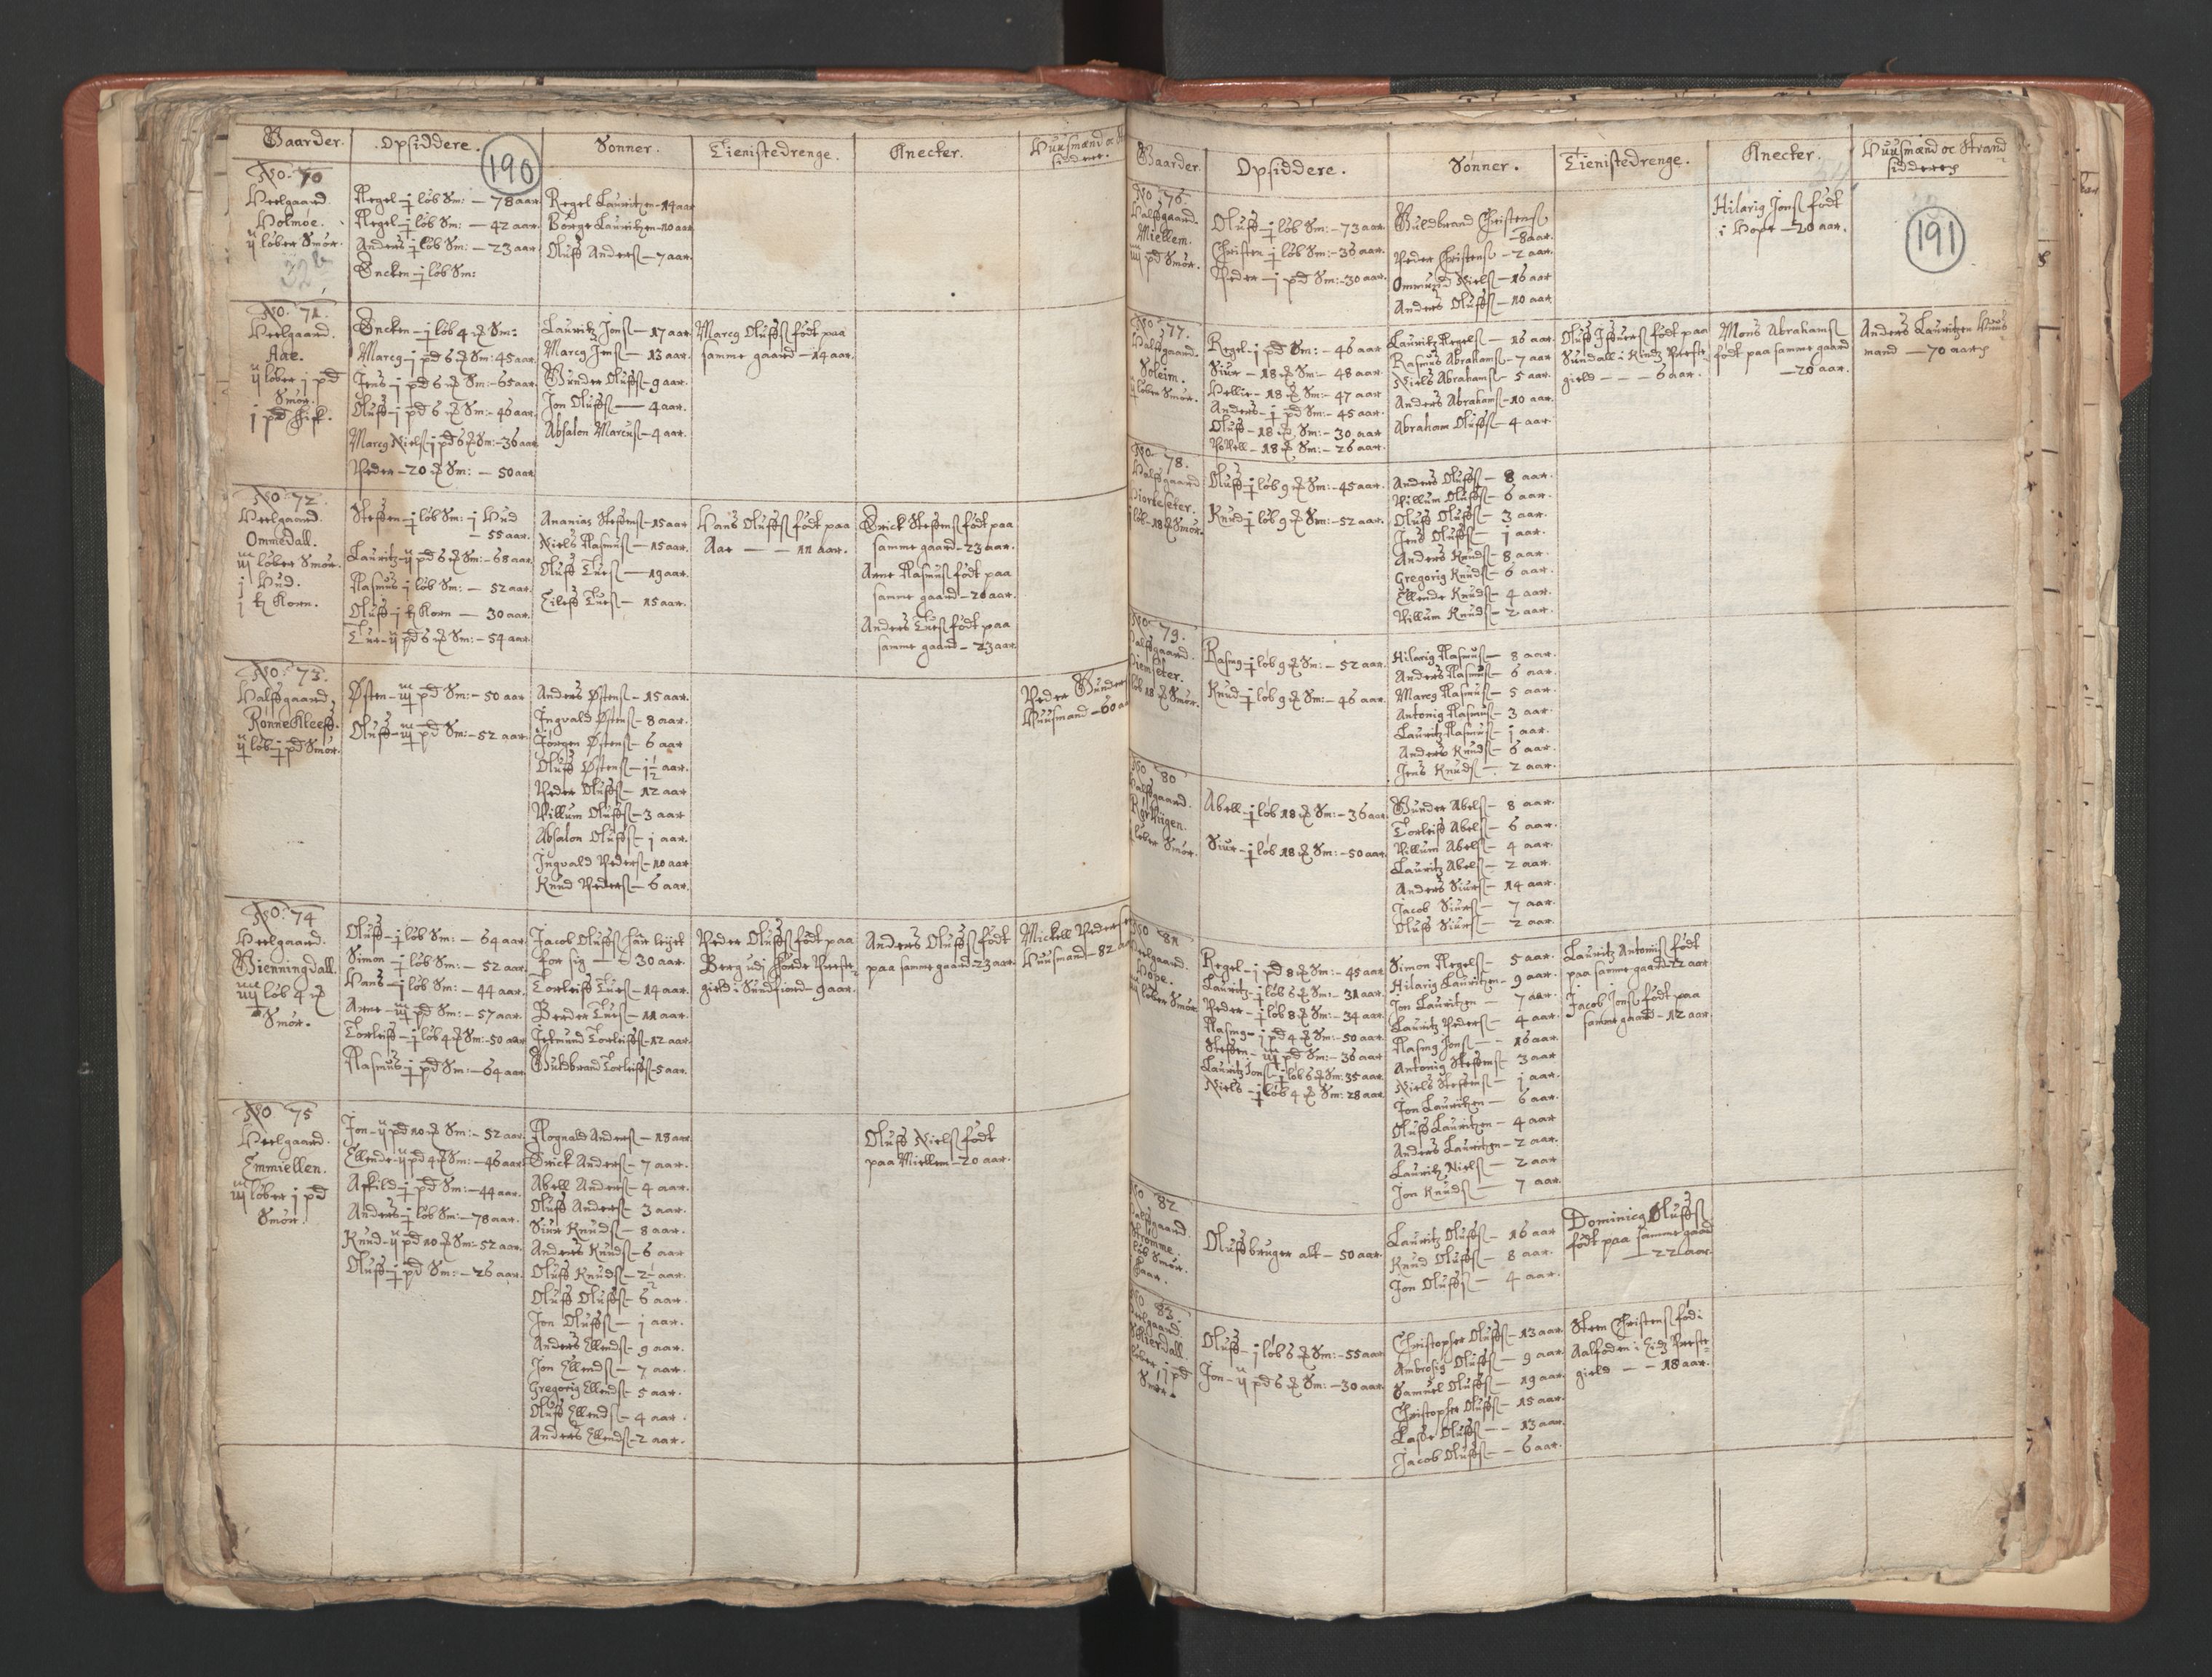 Gaarder. Opsiddere. Sønner. Tienistedrenge. Knecter. Huusmænd oc
siddere.
190
No. 70
Heelgaard.
Holmøe.
ij løber Smør.
Regel - j løb Sm: — 78 aar
Regel - j løb Sm: — 42 aar.
Anders - j løb Sm: — 23 aar
Encken - j løb Sm:
Regel Lauritzen - 14 aar
Børge Lauritzen - 10 aar
Oluff Anderss - 7 aar.
No. 71.
Heelgaard.
Aae.
ij løber j pd
Smør.
j pd Fisk.
Encken - j løb 4 ℔ Sm:
Marcg - j pd 6 ℔ Sm: 45 aar.
Jens - j pd 6 ℔ Sm: - 65 aar.
Oluff - j pd 6 ℔ Sm: - 46 aar.
Marcg Nielss - j pd 6 ℔ Sm: - 36 aar
Peder - 20 ℔ Sm: — 50 aar
Lauritz Jonss — 17 aar
Marcg Jenss — 13 aar.
Gunder Oluffss - 9 aar.
Jon Oluffss — 4 aar.
Absalon Marcuss - 4 aar.
Marcg Oluffss født paa
samme gaard — 14 aar.
No. 72.
Heelgaard.
Ommedall.
iij løber Smør.
j Hud.
j tt Korn.
Steffen - j løb Sm: j Hud
— 55 aar.
Lauritz - ij pd 6 ℔ Sm: - 68 aar.
Rasmus - j løb Sm: — 52 aar.
Oluff - j tt Korn — 30 aar.
Tue - ij pd 6 ℔ Sm: — 54 aar.
Ananias Steffenss - 15 aar
Niels Rasmuss — 15 aar.
Oluff Tuess — 19 aar.
Eileff Tuess — 15 aar.
Hans Oluffss født paa
Aae — — 11 aar.
Erick Steffenss født paa
samme gaard - 23 aar.
Arne Rasmuss født paa
samme gaard - 20 aar.
Anders Tuess født paa
samme gaard - 23 aar
No. 73.
Halffgaard.
Rønnekleeff.
ij løb j pd Smør.
Østen - iij pd Sm: — 50 aar
Oluff - iij pd Sm: - 52 aar.
Anders Østenss - 15 aar.
Ingvald Østenss - 8 aar.
Jørgen Østenss - 6 aar
Oluff Østenss - 1½ aar.
Peder Oluffss - 12 aar
Willum Oluffss - 3 aar
Absalon Oluffss - 1 aar.
Ingvald Pederss - 10 aar
Knud Pederss - 6 aar.
Peder Gunder
Huusmand - 60 a
No. 74
Heelgaard.
Gienningdall.
iiij løb 4 ℔
Smør.
Oluff - j løb Sm: — 64 aar.
Simon - j løb Sm: — 52 aar.
Hans - j løb Sm: — 44 aar.
Arne - iij pd Sm: — 57 aar.
Torleiff - j løb 4 ℔ Sm: - 50 aar
Rasmus - j pd Sm: — 64 aar
Jacob Oluffss har leyet
for sig — 30 aar.
Torleiff Tuess - 14 aar.
Berder Tuess — 11 aar.
Jetmund Torleiffss - 12 aar.
Guldbrand Torleiffss - 5 aar.
Peder Oluffss født paa
Berg udj Førde Preste-
gield i Sundfiord - 9 aar.
Anders Oluffss født
paa samme gaard 23 aar.
Mickell Peders
Huusmand - 82
No 75
Heelgaard.
Emmiellen.
iij løber j pd
Smør.
Jon - ij pd 10 ℔ Sm: - 52 aar.
Ellende - ij pd 4 ℔ Sm: - 46 aar
Askild - j pd Sm: — 44 aar.
Anders - j løb Sm: — 78 aar.
Knud - ij pd 10 ℔ Sm: - 52 aar.
Oluff - j pd Sm: — 26 aar.
Rognald Anderss - 18 aar
Erick Anderss - 7 aar.
Abell Anderss - 4 aar.
Oluff Anderss - 3 aar.
Siur Knudss - 8 aar.
Anders Knudss - 6 aar
Oluff Knudss - 2½ aar.
Oluff Oluffss - 6 aar.
Jon Oluffss - 1 aar.
Anders Ellendss - 9 aar.
Jon Ellendss - 7 aar.
Gregorig Ellendss 5 aar.
Oluff Ellendss - 4 aar.
Anders Ellendss - 2 aar.
Oluff Nielss født
paa Miellem - 20 aar.
Gaarder. Opsiddere. Sønner. Tienistedrenge. Knecter. Huusmænd oc Strand
sidderes
191
No. 76.
Halffgaard.
Miellem.
iiij pd Smør.
Oluff - j løb Sm: — 73 aar.
Christen - j løb Sm: - 36 aar.
Peder - j pd Sm: - 30 aar.
Guldbrand Christenss
— 8 aar.
Peder Christenss - 2 aar.
Ommund Nielss - 16 aar
Anders Oluffss - 10 aar.
Hilarig Jonss født
i Hope — 20 aar.
No. 77.
Halffgaard.
Soleim.
løber Smør.
Regel - j pd Sm: - 46 aar
Siur - 18 ℔ Sm: - 48 aar.
Hellie - 18 ℔ Sm: - 47 aar
Anders - j pd Sm: - 45 aar.
Oluff - 18 ℔ Sm: - 30 aar
Povell - 18 ℔ Sm: - 26 aar.
Lauritz Regelss - 16 aar
Rasmus Abrahamss - 7 aar
Niels Abrahamss - 5 aar.
Anders Abrahamss - 10 aar.
Abraham Oluffss - 4 aar.
Oluff Iffuerss født paa
Sundall i Kindz Preste-
gield — — — 6 aar.
Mons Abrahamss
født paa samme gaard
— 20 aar.
Anders Lauritzen Huus
mand — 70 aars
No. 78.
Halffgaard
løb - 18 ℔ Smør.
Oluff - j løb 9 ℔ Sm: - 45 aar.
Knud - j løb 9 ℔ Sm: - 52 aar.
Anders Oluffss - 8 aar.
Willum Oluffss - 6 aar.
Oluff Oluffss - 3 aar.
Jens Oluffss - 1 aar.
Anders Knudss - 8 aar.
Gregorig Knudss - 6 aar.
Ellende Knudss - 4 aar.
Willum Knudss - 2 aar.
No. 79.
Halffgaard.
løb 18 ℔ Smør.
Rasmg - j løb 9 ℔ Sm: — 52 aar.
Knud - j løb 9 ℔ Sm: - 46 aar.
Hilarig Rasmuss - 8 aar.
Anders Rasmuss - 6 aar.
Marcg Rasmuss - 5 aar.
Antonig Rasmuss - 3 aar.
Lauritz Rasmuss - 1 aar.
Anders Knudss - 6 aar.
Jens Knudss - 2 aar.
No 80
Halffgaard.
løber Smør.
Abell - j løb 18 ℔ Sm: - 36 aar.
Siur - j løb 18 ℔ Sm: - 50 aar.
Gunder Abelss - 8 aar.
Torleiff Abelss - 6 aar.
Willum Abelss - 4 aar.
Lauritz Abelss - 2 aar.
Anders Siurss - 14 aar.
Jacob Siurss - 7 aar.
Oluff Siurss - 2 aar.
No 81
Heelgaard.
Hope.
løber Smør
Regel - j pd 8 ℔ Sm: - 45 aar
Lauritz - j løb 6 ℔ Sm: - 31 aar.
Peder - j løb 8 ℔ Sm: - 34 aar.
Rasmg - j pd 4 ℔ Sm: - 50 aar.
Steffen - iij pd Sm: - 36 aar
Lauritz Jonss j løb 6 ℔ Sm: 35 aar.
Niels - j løb 4 ℔ Sm: 28 aar.
Simon Regelss - 5 aar.
Hilarig Lauritzen - 9 aar.
Jon Lauritzen - 7 aar.
Lauritz Pederss - 4 aar.
Rasmg Jonss - 16 aar.
Antonig Steffenss - 3 aar
Niels Steffenss - 1 aar.
Jon Lauritzen - 6 aar.
Oluff Lauritzen - 4 aar
Anders Lauritzen - 2 aar.
Lauritz Nielss - 2 aar
Jon Knudss - 7 aar.
Lauritz Antoniss født
paa samme gaard 22 aar
Jacob Jonss født paa
samme gaard - 12 aar
No 82
Halffgaard.
Strømme.
løb Smør.
Oluff bruger alt - 50 aar.
Lauritz Oluffss - 16 aar
Knud Oluffss - 8 aar.
Jon Oluffss - 4 aar.
Dominicg Oluffss
født paa samme gaard
— 22 aar.
No 83.
Heelgaard.
løber j pd
Smør.
Oluff - j løb 6 ℔ Sm: - 55 aar.
Jon - ij pd 6 ℔ Sm: - 30 aar.
Christopher Oluffss - 13 aar.
Ambrosig Oluffss - 9 aar.
Samuel Oluffss - 19 aar.
Christopher Oluffss - 15 aar.
Lasse Oluffss - - 13 aar.
Jacob Oluffss - - 6 aar.
Steen Christenss fød i
Aalfoden i Eidz Preste-
gield — — 18 aar.